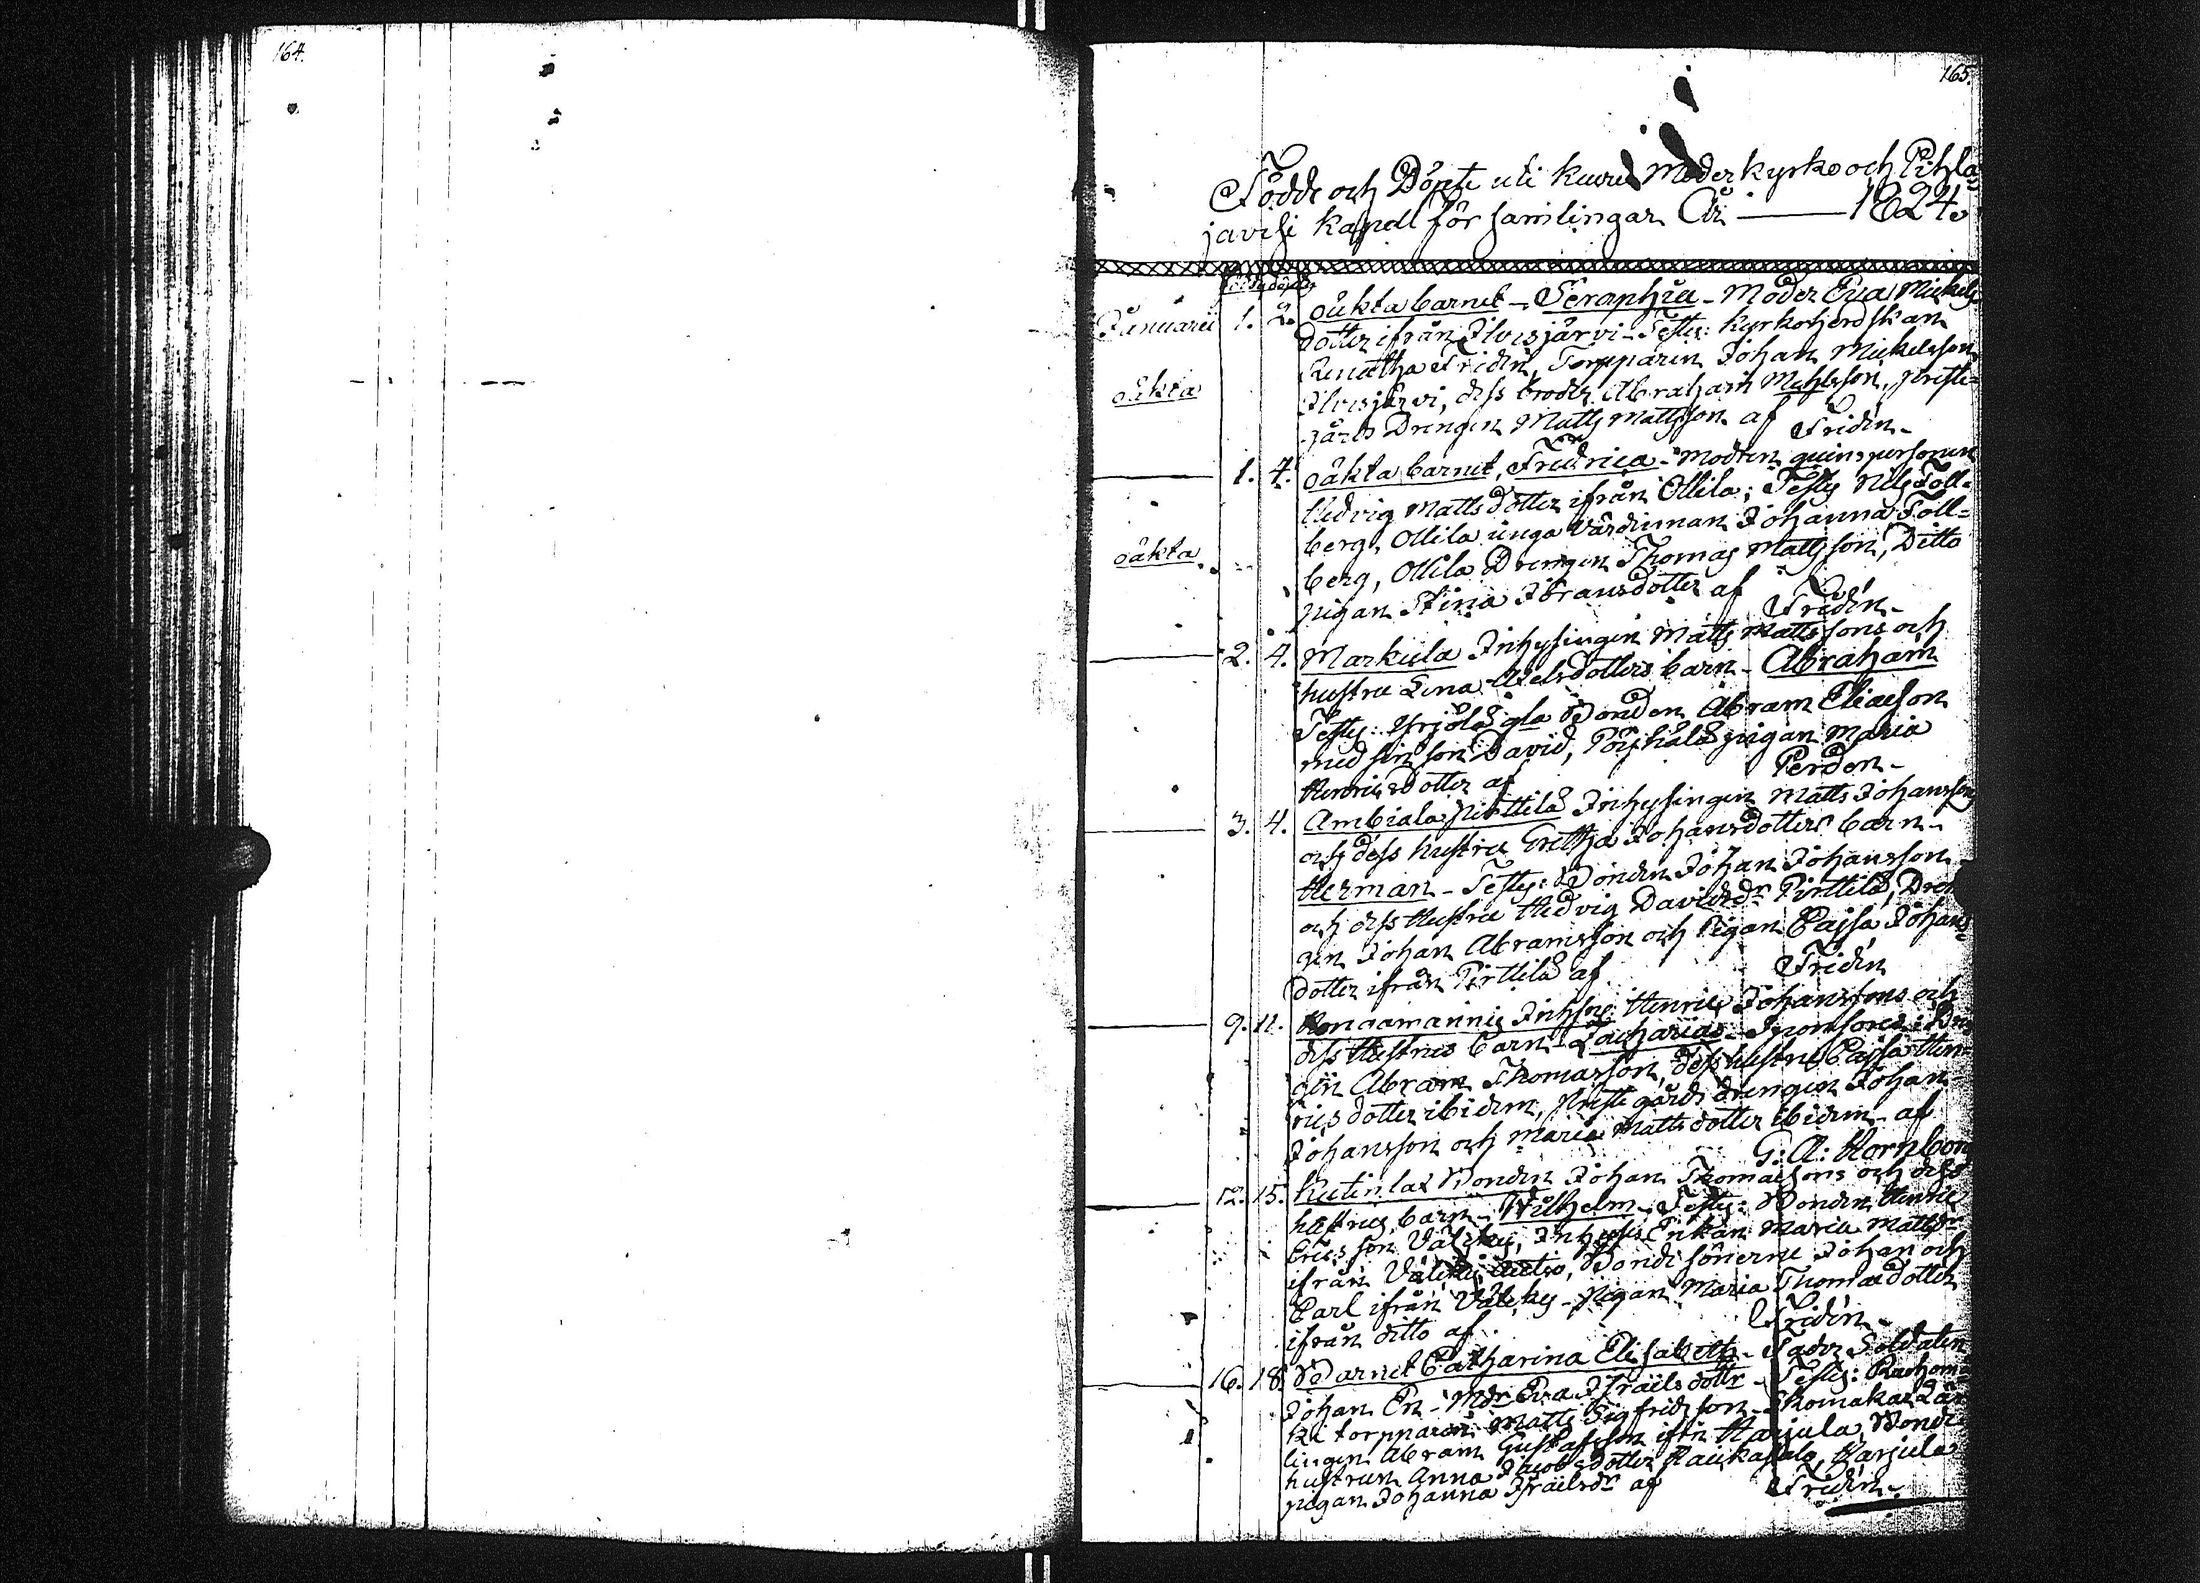 164.
165.
Födde och Döpte uti kuru Moder kyrko och Pihla=
javesi kapell församlingar År — 1824.
Januarii 1. 2. oäkta barnet - Seraphia - Moder Eva Mickels
dotter ifrån Ilvesjärvi - Testes: kyrkoherdskan
Renatha Fridén, Torpparen Johan Mickelsson
oäkta
Ilvesjärvi, dess broder Abraham Michlsson, preste-
gårds Drengen Matts Mattsson af Fridén -
1. 4. oäkta barnet, Fredrica - modren quinspersonen
Hedvig Mattsdotter ifrån Ollila; Testes Nils Foll-
berg, Ollila unga värdinnan Johanna Foll=
oäkta.
berg, Ollila Drengen Thomas Mattsson, Ditto
pigan Stina Jöransdotter af Fridén -
2. 4. Markula Inhysingen Matts Mattssons och
hustru Lena Axelsdotters barn - Abraham
Testes: Yrjölä gla Bonden Abram Eliaeson
med sin son David, Pöyhälä pigan Maria
Henricsdotter af Perdén -
3. 4. Ambiala Pirttilä Inhysingen Matts Johansson
och dess hustru Gretha Johansdotters barn -
Herman - Testes: Bonden Johan Johansson
och dess Hustru Hedvig Davidsdr Pirttilä, Dren
gen Johan Abramsson och Pigan Cajsa Johans=
dotter ifrån Pirttilä af Fridén
9. 11. Inhyse Henric Johanssons och
dess Hustrus barn - Zacharias -
gen Abram Thomasson, dess hustru Cajsa Hen=
ricsdotter ibidem, Prestegårds drengen Johan
Johansson och Maria Mattsdotter ibidem - af
G: A: Hornborg
12. 15. Keutinlax Bonden Johan Thomaesons och dess
hustrus barn - Wilhelm - Testes: Bonden Henric
Ericsson Väliky, Inhyses Enkan Maria Mattsdr
ifrån Väliky, Bonde sönerne Johan och
Carl ifrån Väliky - pigan Maria Thomaedotter
ifrån ditto af Fridén -
16. 18. Barnet Catharina Elisabeth - Fader Soldaten
Johan En - Mdr Eva Israëlsdottr - Testes:
ki torpparen Matts Sigfridsson - Skomakar Lär
lingen Abram Gustafsson ifrn Harjula, Bonde
hustrun Anna Jacobsdotter Raukasalo, Harjula
pigan Johanna Israëlsdr af Fridén -